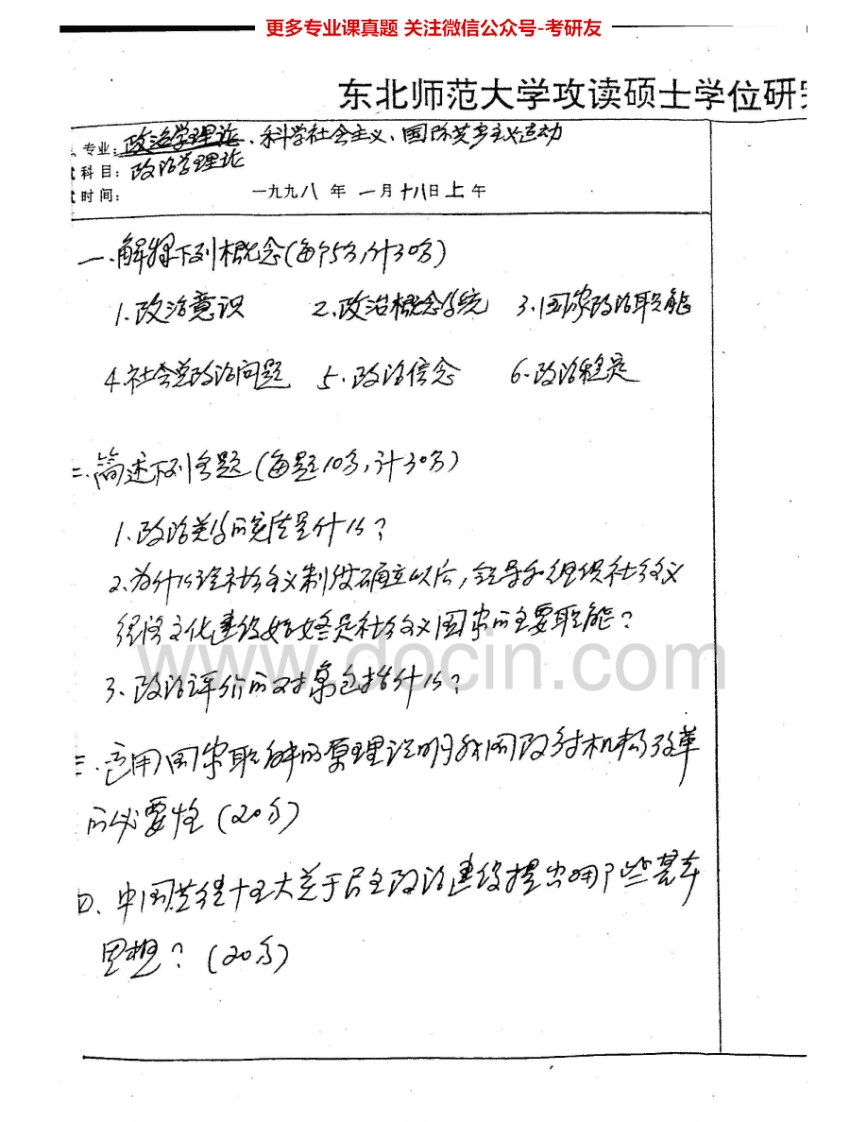 更多专业课真题 关注微信公众号-考研友
东北师范大学攻读硕士学位研
专业:政治学理论、科学社会主义、国际共产主义运动
科目:政治学理论
时间: 一九九八 年 一 月 十八 日 上 午
一、解释下列概念(每个5分,计30分)
1.政治意识 2.政治概念系统 3.国家政治职能
4.社会党政治问题 5.政治信念 6.政治稳定
二、简述下列各题(每题10分,计30分)
1.政治关系的实质是什么?
2.为什么说社会主义制度确立以后,领导和组织社会主义
经济文化建设始终是社会主义国家的主要职能?
3、政治评价的对象包括什么?
三、运用国家职能的原理说明我国政府机构改革
的必要性(20分)
四、中国共产党十五大关于民主政治建设提出哪些基本
思想?(20分)
www.docin.com